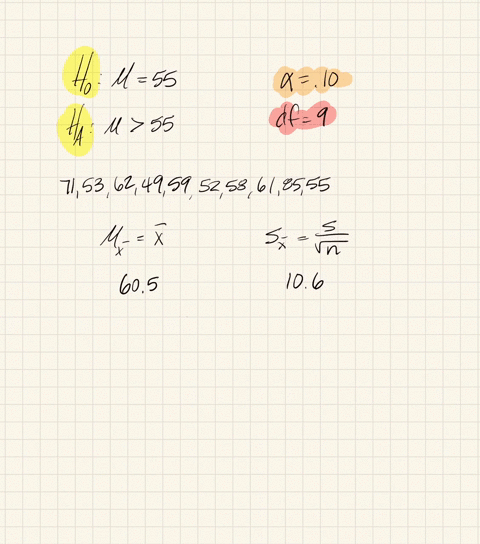 H₀: μ = 55
α = .10
H_A: μ > 55
df = 9
71, 53, 62, 49, 59, 52, 58, 61, 85, 55
μ_x̄ = x̄
s_x̄ = s/√n
60.5
10.6